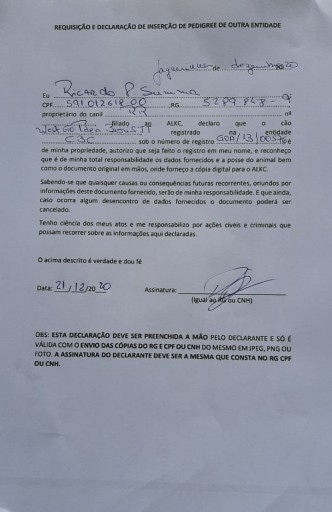 REQUISIÇÃO E DECLARAÇÃO DE INSERÇÃO DE PEDIGREE DE OUTRA ENTIDADE
de dezembro 20
Eu Ricardo P. Summa
CPF 591012618 00 RG 5289848-9
proprietário do canil RR nº
filiado ao ALKC, declaro que o cão
West Golden registrado na entidade
CBC sob o número de registro GOA/13/00376 é
de minha propriedade, autorizo que seja feito o registro em meu nome, e reconheço
que é de minha total responsabilidade os dados fornecidos e a posse do animal bem
como o documento original em mãos, onde forneço a cópia digital para o ALKC.
Sabendo-se que quaisquer causas ou consequências futuras recorrentes, oriundos por
informações deste documento fornecido, serão de minha responsabilidade. E que ainda,
caso ocorra algum desencontro de dados fornecidos o documento poderá ser
cancelado.
Tenho ciência dos meus atos e me responsabilizo por ações cíveis e criminais que
possam recorrer sobre as informações aqui declaradas.
O acima descrito é verdade e dou fé
Data: 21/12/2020 Assinatura:
(Igual ao RG ou CNH)
OBS: ESTA DECLARAÇÃO DEVE SER PREENCHIDA A MÃO PELO DECLARANTE E SÓ É
VÁLIDA COM O ENVIO DAS CÓPIAS DO RG E CPF OU CNH DO MESMO EM JPEG, PNG OU
FOTO. A ASSINATURA DO DECLARANTE DEVE SER A MESMA QUE CONSTA NO RG CPF
OU CNH.